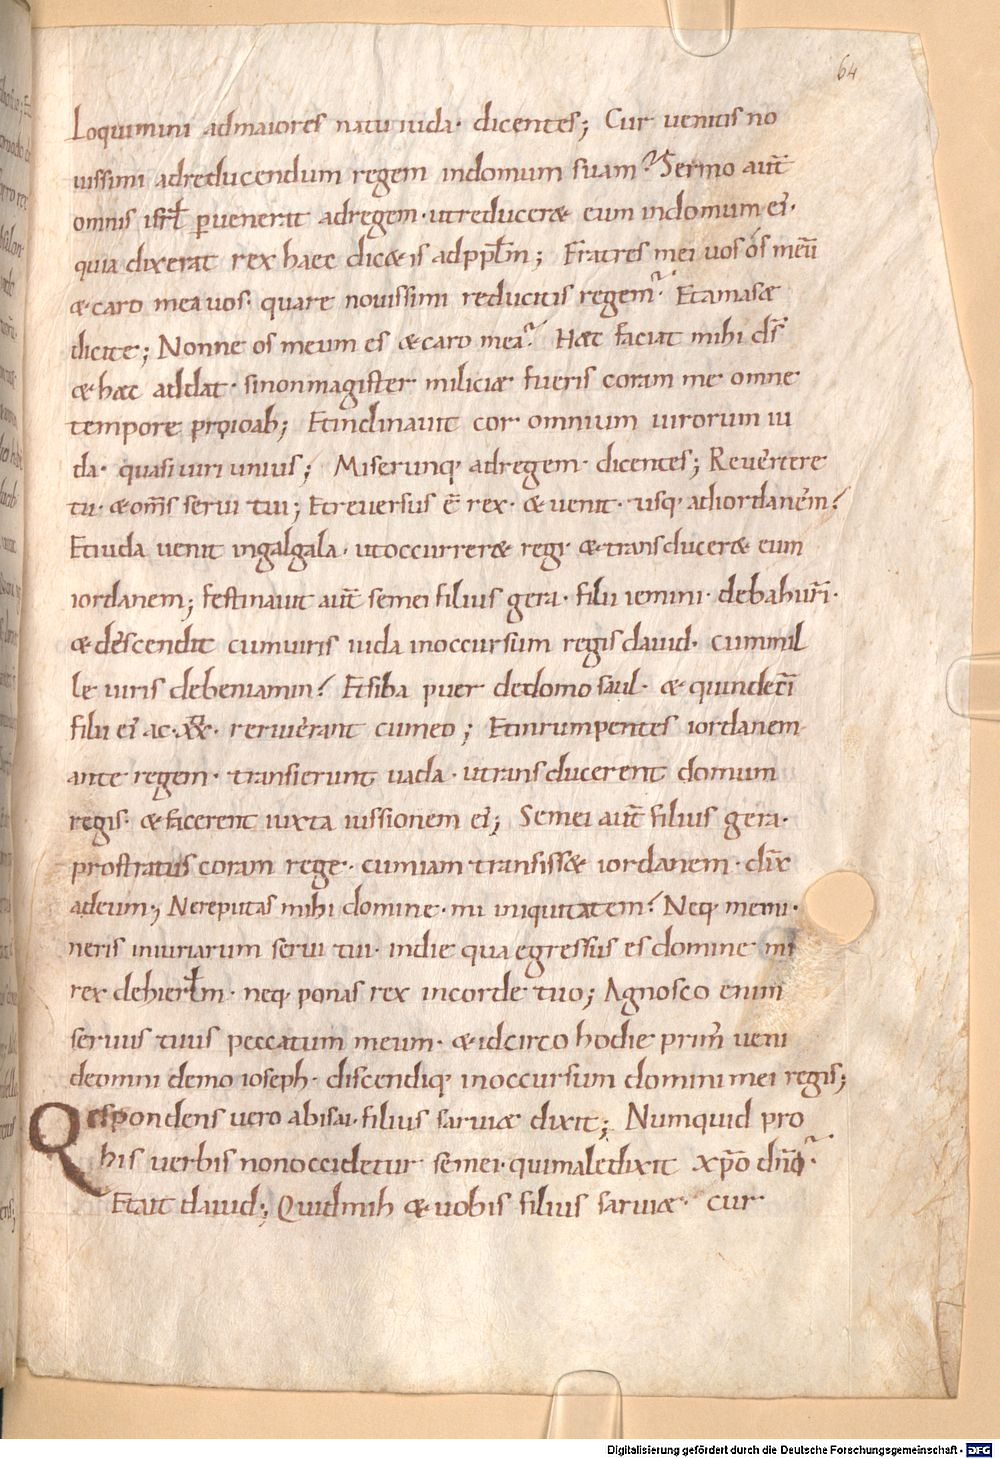 64
Loquimini admaiores natu iuda· dicentes; Cur uenitis no
uissimi adreducendum regem indomum suam? Sermo aut̄
omnis isrł puenerat adregem· utreducer& eum indomum ei·
quia dixerat rex haec dic&is adpplm̄; Fratres mei uos ós meū
& caro mea uos· quare nouissimi reducitis regem? Etamasę
dicite; Nonne os meum es & caro mea? Hęc faciat mihi ds̄
& hęc addat· sinonmagister miliciæ fueris coram me omne
tempore proioab; Etinclinauit cor omnium uirorum iu
da· quasi uiri unius; Miserunq; adregem· dicentes; Reuertere
tu· & om̄s serui tui; Etreuersus ē rex· & uenit· usq; adiordanem?
Etiuda uenit ingalgala· utoccurrer& regi· & transducer& eum
iordanem; festinauit aut̄ semei filius gera· filii iemini· debahurī·
& descendit cumuiris iuda inoccursum regis dauid· cummil
le uiris debeniamin? Etsiba puer dedomo saul· & quindecī
filii ei ac·xx· serui erant cumeo; Etinrumpentes iordanem·
ante regem· transierunt uada· utransducerent domum
regis· & facerent iuxta iussionem ei; Semei aut̄ filius gera·
prostratus coram rege· cumiam transiss& iordanem· dix̄
adeum; Nereputas mihi domine· mi iniquitatem? Neq; memi·
neris iniuriarum serui tui· indie qua egressus es domine mi
rex dehierłm· neq; ponas rex incorde tuo; Agnosco enim
seruus tuus peccatum meum· & idcirco hodie prim̄ ueni
deomni domo ioseph· discendiq; inoccursum domini mei regis;
Respondens uero abisai· filius saruiæ dixit; Numquid pro
his uerbis nonoccidetur semei· quimaledixit xp̄o dn̄o?
Etait dauid; Quidmih & uobis filius saruiæ· cur
Digitalisierung gefördert durch die Deutsche Forschungsgemeinschaft · DFG